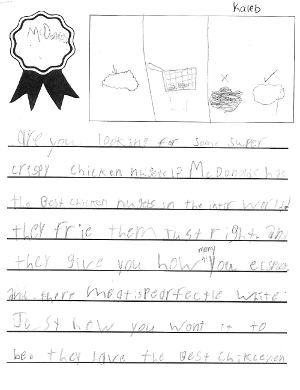 Kaleb
McDonalds
are you looking for some super
crispy chicken nugets? McDonalds has
the Best chicken nugets in the intir world!
they frie them Just right. an
they give you how merry you
and there meat is pearfectle white.
Just how you wont it to
be. they have the BEST Chikcenen